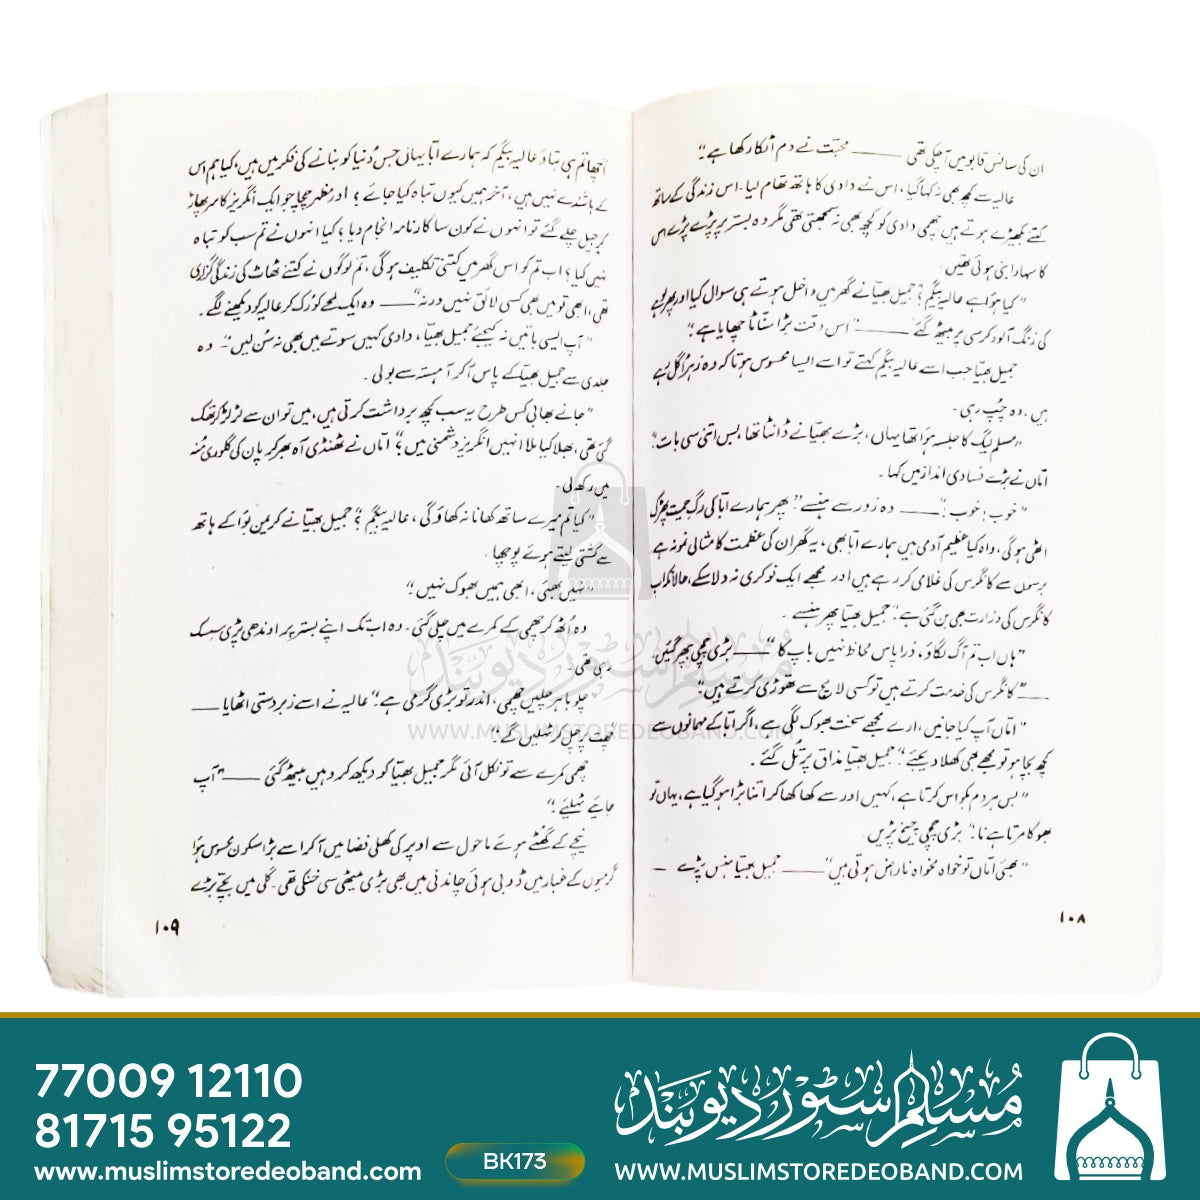 ان کی سانس قابو میں آ چکی تھی ـــــ محبّت نے دم اٹکا رکھا ہے۔"
عالیہ سے کچھ بھی نہ کہا گیا، اس نے دادی کا ہاتھ تھام لیا۔ اس زندگی کے ساتھ
کتنے بکھیڑے ہوتے ہیں، چھمی دادی کو کچھ بھی نہ سمجھتی تھی مگر وہ بستر پر پڑے پڑے اس
کا سہارا بنی ہوئی تھیں۔
"کیا ہوا ہے عالیہ بیگم؟" جمیل بھیّا نے گھر میں داخل ہوتے ہی سوال کیا اور پھر لوہے
کی زنگ آلود کرسی پر بیٹھ گئے ـــــ "اس وقت بڑا سنّاٹا چھایا ہے۔"
جمیل بھیّا جب اسے عالیہ بیگم کہتے تو اسے ایسا محسوس ہوتا کہ وہ زہر اگل رہے
ہیں، وہ چپ رہی۔
"مسلم لیگ کا جلسہ ہوا تھا یہاں، بڑے بھیّا نے ڈانٹا تھا، بس اتنی سی بات۔"
اماں نے بڑے فسادی انداز میں کہا۔
"خوب! خوب!" ـــــ وہ زور سے ہنسے "پھر ہمارے ابا کی رگِ حمیت پھڑک
اٹھی ہوگی، واہ کیا عظیم آدمی ہیں ہمارے ابا بھی، یہ گھر ان کی عظمت کا مثالی نمونہ ہے۔
برسوں سے کانگرس کی غلامی کر رہے ہیں اور مجھے ایک نوکری نہ دلا سکے، حالانکہ اب
کانگرس کی وزارت بھی بن گئی ہے۔" جمیل بھیّا پھر ہنسے۔
"ہاں اب تم آگ لگاؤ، ذرا پاس لحاظ نہیں باپ کا" ـــــ بڑی چچی بپھر گئیں۔
ـــــ "کانگرس کی خدمت کرتے ہیں تو کسی لالچ سے تھوڑی کرتے ہیں۔"
"اماں آپ کیا جانیں، ارے مجھے سخت بھوک لگی ہے، اگر ابا کے مہمانوں سے
کچھ بچا ہو تو مجھے بھی کھلا دیجئے۔" جمیل بھیّا مذاق پر تُل گئے۔
"بس ہر دم کو اس کرتا ہے، کہیں اور سے کھا کھا کر اتنا بڑا ہو گیا ہے، یہاں تو
بھوکا مرتا ہے نا۔" بڑی چچی چیخ پڑیں۔
"بھئی اماں تو خواہ مخواہ ناراض ہوتی ہیں" ـــــ جمیل بھیّا ہنس پڑے ـــــ
۱۰۸
اچھا تم ہی بتاؤ عالیہ بیگم کہ ہمارے ابا یہاں جس دُنیا کو بنانے کی فکر میں ہیں، کیا ہم اس
کے باشندے نہیں ہیں، آخر ہمیں کیوں تباہ کیا جائے؟ اور مظہر چچا جو ایک انگریز کا سر پھاڑ
کر جیل چلے گئے تو انہوں نے کون سا کارنامہ انجام دیا؟ کیا انہوں نے تم سب کو تباہ
نہیں کیا؟ اب تم کو اس گھر میں کتنی تکلیف ہوگی، تم لوگوں نے کتنے ٹھاٹ کی زندگی گزاری
تھی، ابھی تو میں بھی کسی لائق نہیں ورنہ" ـــــ وہ ایک لمحے کو رُک کر عالیہ کو دیکھنے لگے۔
"آپ ایسی باتیں نہ کیجئے جمیل بھیّا، دادی کہیں سوتے میں بھی نہ سُن لیں"۔ وہ
جلدی سے جمیل بھیّا کے پاس آکر آہستہ سے بولی۔
"جانے بھابی کس طرح یہ سب کچھ برداشت کرتی ہیں، میں تو ان سے لڑ لڑ کر تھک
گئی تھی، بھلا کیا ملا انہیں انگریز دشمنی میں؟" اماں نے ٹھنڈی آہ بھر کر پان کی گلوری مُنہ
میں رکھ لی۔
"کیا تم میرے ساتھ کھانا نہ کھاؤ گی، عالیہ بیگم؟" جمیل بھیّا نے کریمن بوا کے ہاتھ
سے کشتی لیتے ہوئے پوچھا۔
"نہیں بھئی، ابھی ہمیں بھوک نہیں۔"
وہ اُٹھ کر چھمی کے کمرے میں چلی گئی۔ وہ اب تک اپنے بستر پر اوندھی پڑی سسک
رہی تھی۔
"چلو باہر چلیں چھمی، اندر تو بڑی گرمی ہے۔" عالیہ نے اسے زبردستی اٹھایا ـــــ
"چھت پر چل کر ٹہلیں گے۔"
چھمی کمرے سے تو نکل آئی مگر جمیل بھیّا کو دیکھ کر وہیں بیٹھ گئی ـــــ "آپ
جائیے ٹہلئے۔"
نیچے کے گھٹے ہوئے ماحول سے اوپر کی کھلی فضا میں آکر اسے بڑا سکون محسوس ہوا
گرمیوں کے غبار میں ڈوبی ہوئی چاندنی میں بھی بڑی میٹھی سی خنکی تھی۔ گلی میں بچے بڑے
۱۰۹
مسلم سٹور دیوبند
WWW.MUSLIMSTOREDEOBAND.COM
77009 12110
81715 95122
www.muslimstoredeoband.com
BK173
مسلم سٹور دیوبند
WWW.MUSLIMSTOREDEOBAND.COM